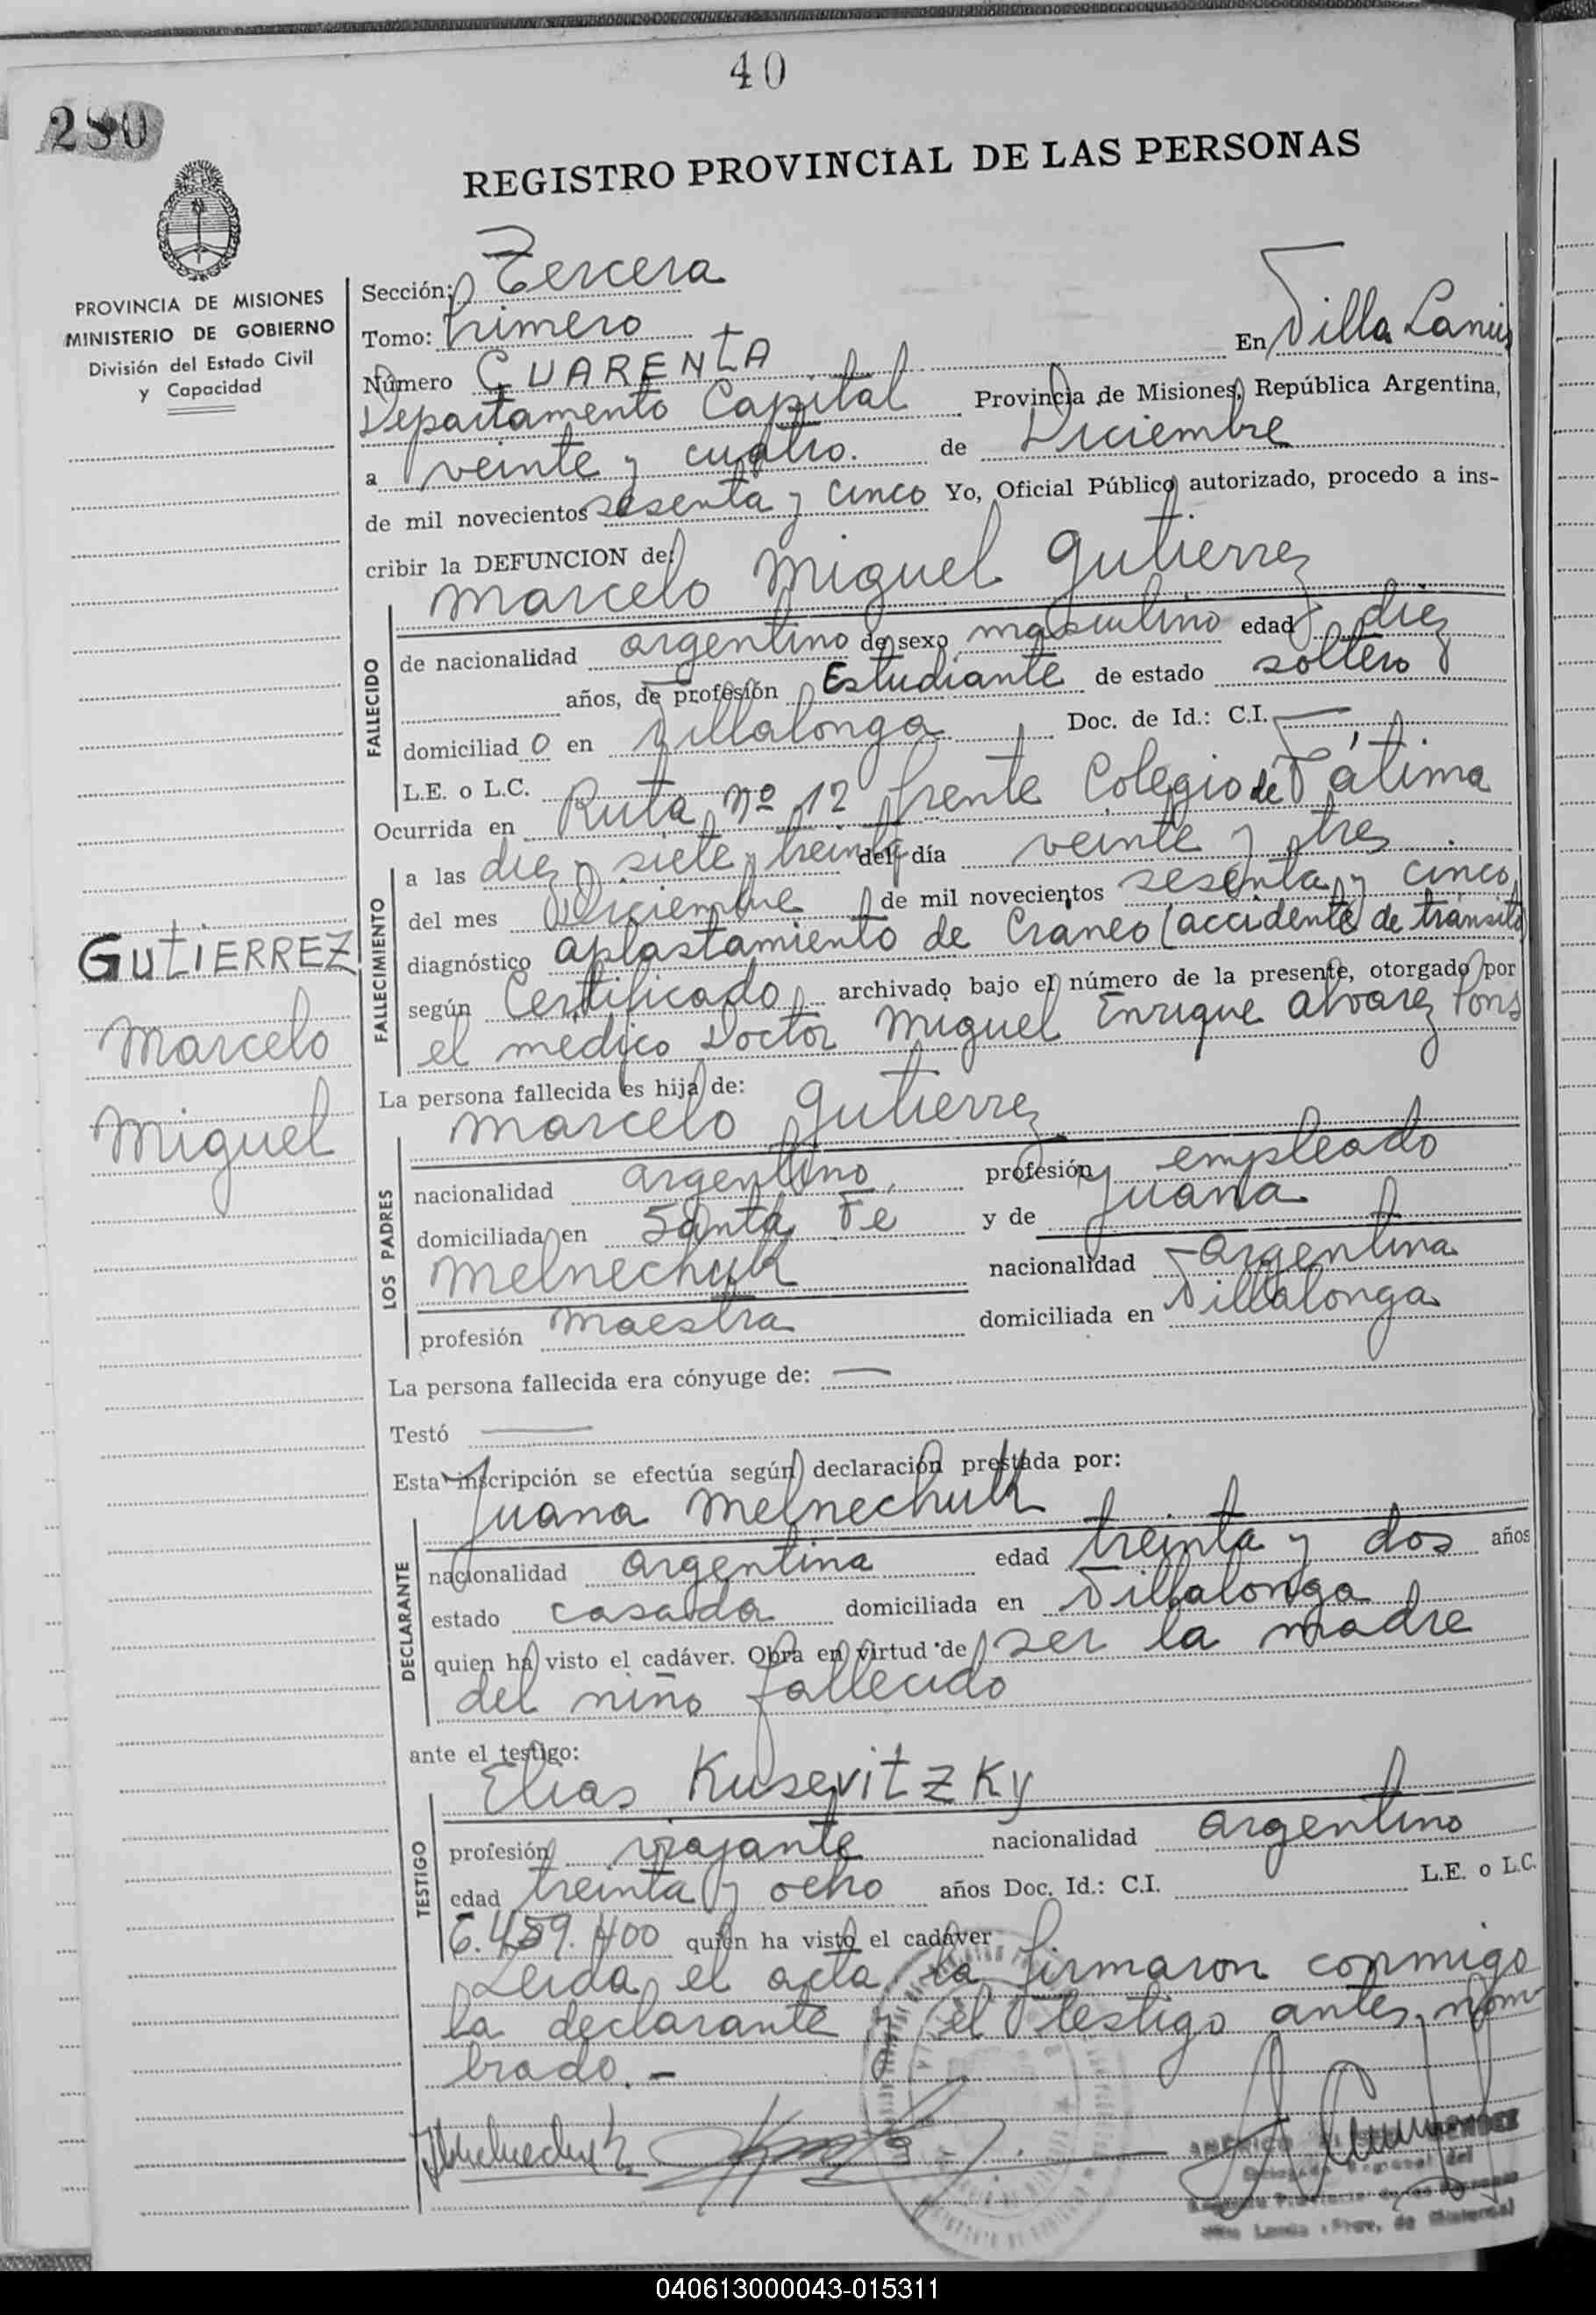 40
280
REGISTRO PROVINCIAL DE LAS PERSONAS
PROVINCIA DE MISIONES
MINISTERIO DE GOBIERNO
División del Estado Civil
y Capacidad
Sección: Tercera
Tomo: Primero
En Villa Lanús
Número CUARENTA
Departamento Capital Provincia de Misiones, República Argentina,
a veinte y cuatro. de Diciembre
de mil novecientos sesenta y cinco Yo, Oficial Público autorizado, procedo a ins-
cribir la DEFUNCION de:
Marcelo Miguel Gutierrez
FALLECIDO
de nacionalidad argentino de sexo masculino edad diez
años, de profesión Estudiante de estado soltero
domiciliad o en Villalonga Doc. de Id.: C.I. —
L.E. o L.C.
Ocurrida en Ruta Nº 12 frente Colegio de Fátima
FALLECIMIENTO
a las diez y siete y treinta del día veinte y tres
del mes Diciembre de mil novecientos sesenta y cinco
diagnóstico aplastamiento de Craneo (accidente de tránsito
según Certificado archivado bajo el número de la presente, otorgado por
el médico Doctor Miguel Enrique Alvarez Pons
GUTIERREZ
Marcelo
Miguel
La persona fallecida es hija de:
Marcelo Gutierrez
LOS PADRES
nacionalidad argentino, profesión empleado
domiciliada en Santa Fe y de Juana
Melnechuk nacionalidad argentina
profesión maestra domiciliada en Villalonga
La persona fallecida era cónyuge de: —
Testó —
Esta inscripción se efectúa según declaración prestada por:
Juana Melnechuk
DECLARANTE
nacionalidad argentina edad treinta y dos años
estado casada domiciliada en Villalonga
quien ha visto el cadáver. Obra en virtud de ser la madre
del niño fallecido
ante el testigo:
Elias Kusevitzky
TESTIGO
profesión viajante nacionalidad argentino
edad treinta y ocho años Doc. Id.: C.I. L.E. o L.C.
6.459.400 quien ha visto el cadáver
Leida el acta la firmaron conmigo
la declarante y el testigo antes nom-
brado.-
040613000043-015311